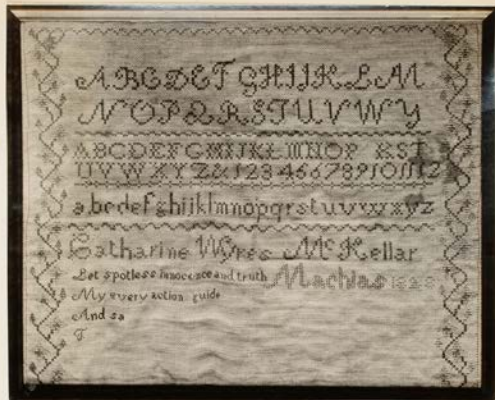 A B C D E F G H I J K L M
N O P Q R S T U V W Y
A B C D E F G H I J K L M N O P R S T
U V W X Y Z & 1 2 3 4 5 6 7 8 9 10 11 12
a b c d e f g h i j k l m n o p q r s t u v w x y z
Catharine Wyres McKellar
Let spotless innocence and truth Machias 1828
My every action guide
And sa
T